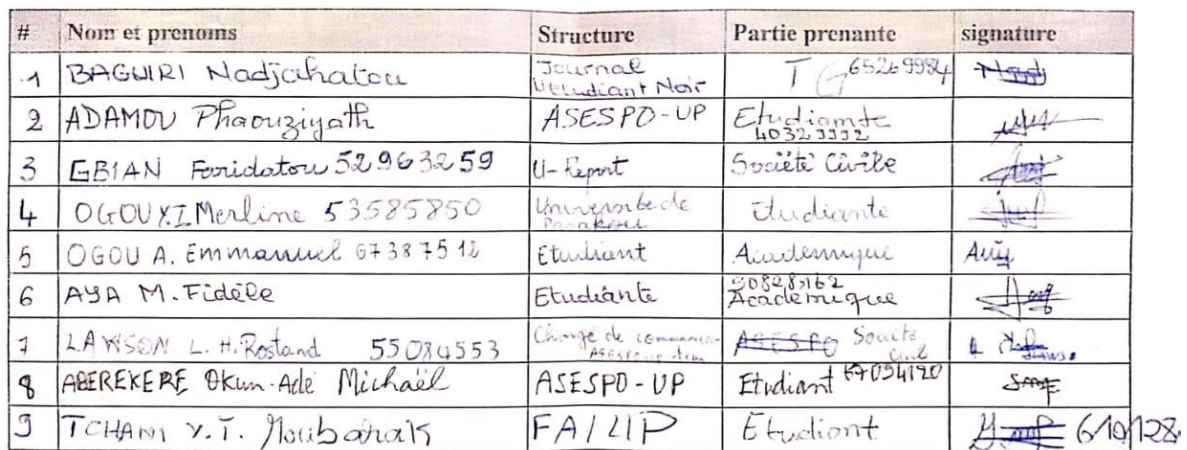 # Nom et prenoms Structure Partie prenante signature
1 BAGUIRI Nadjahatou Journal L'Etudiant Noir 65269984
2 ADAMOU Phaouziyath ASESPO-UP Etudiante 40323992
3 GBIAN Faridatou 52963259 U-Report Société Civile
4 OGOU Y.I Merline 53585850 Université de Parakou Etudiante
5 OGOU A. Emmanuel 67387512 Etudiant Académique
6 AYA M. Fidèle Etudiante Académique
7 LAWSON L. H. Rostand 55084553 Chargé de ASESPO Société Civil
8 ABEREKERE Okun-Adé Michaël ASESPO-UP Etudiant 67094120
9 TCHANI Y.T. Moubarak Etudiant